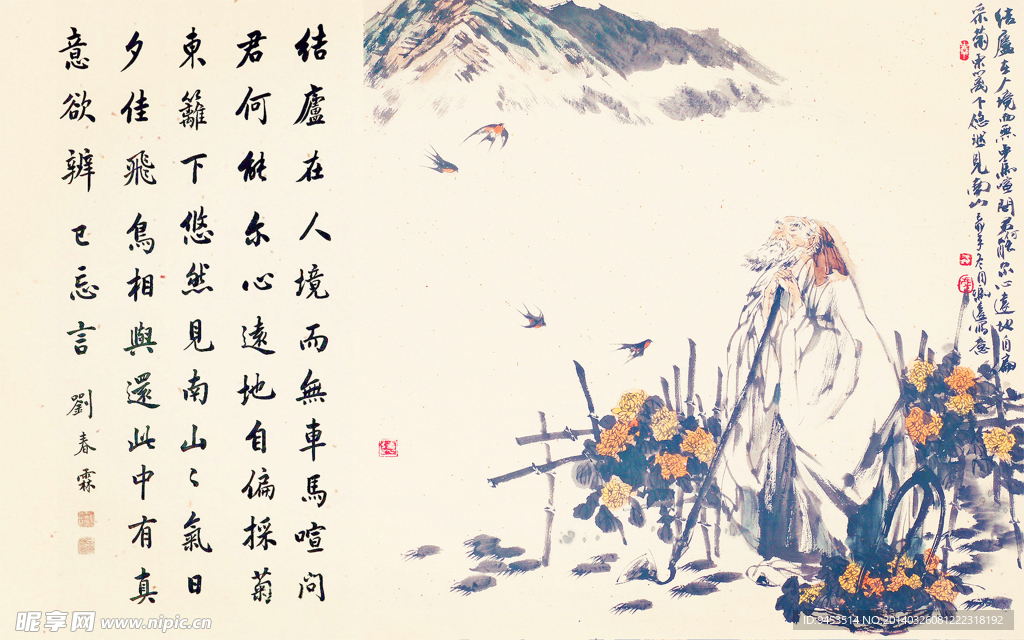 结廬在人境而無車馬喧问
君何能尔心遠地自偏採菊
東籬下悠然見南山々氣日
夕佳飛鳥相與還此中有真
意欲辨已忘言
劉春霖
结廬在人境而無車馬喧問君何能尔心遠地自偏
采菊东篱下悠然见南山
昵享网 www.nipic.cn
ID:9453514 NO:20140326081222318192